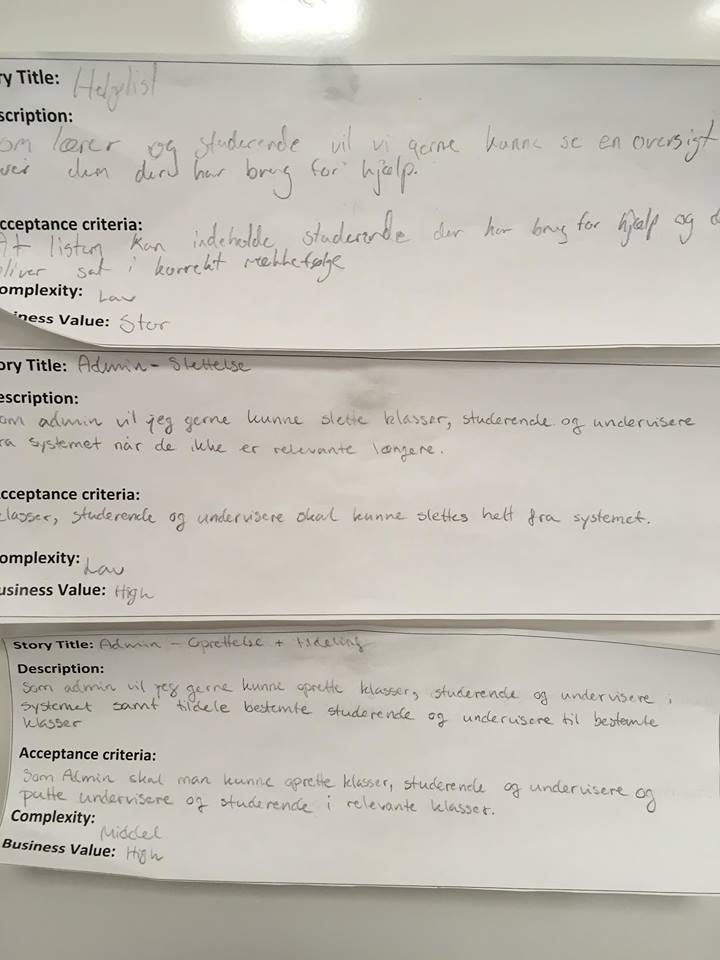 ry Title: Helplist
scription:
om lærer og studerende vil vi gerne kunne se en oversigt
ver dem der har brug for hjælp.
cceptance criteria:
At listen kan indeholde studerende der har brug for hjælp og d
bliver sat i korrekt rækkefølge
omplexity: Lav
iness Value: Stor
ory Title: Admin - Slettelse
escription:
om admin vil jeg gerne kunne slette klasser, studerende og undervisere
ra systemet når de ikke er relevante længere.
cceptance criteria:
klasser, studerende og undervisere skal kunne slettes helt fra systemet.
omplexity: Lav
usiness Value: High
Story Title: Admin - Oprettelse + tideling
Description:
Som admin vil jeg gerne kunne oprette klasser, studerende og undervisere i
systemet samt tildele bestemte studerende og undervisere til bestemte
klasser
Acceptance criteria:
Som Admin skal man kunne oprette klasser, studerende og undervisere og
putte undervisere og studerende i relevante klasser.
Complexity: Middel
Business Value: High